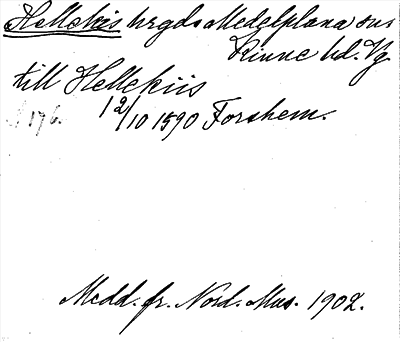 Hellekis hrgd Medelplana sn
Kinne hd. Vg.
till Hellekiis
12/10 1590 Forshem.
176.
Medd. fr. Nord. Mus. 1902.